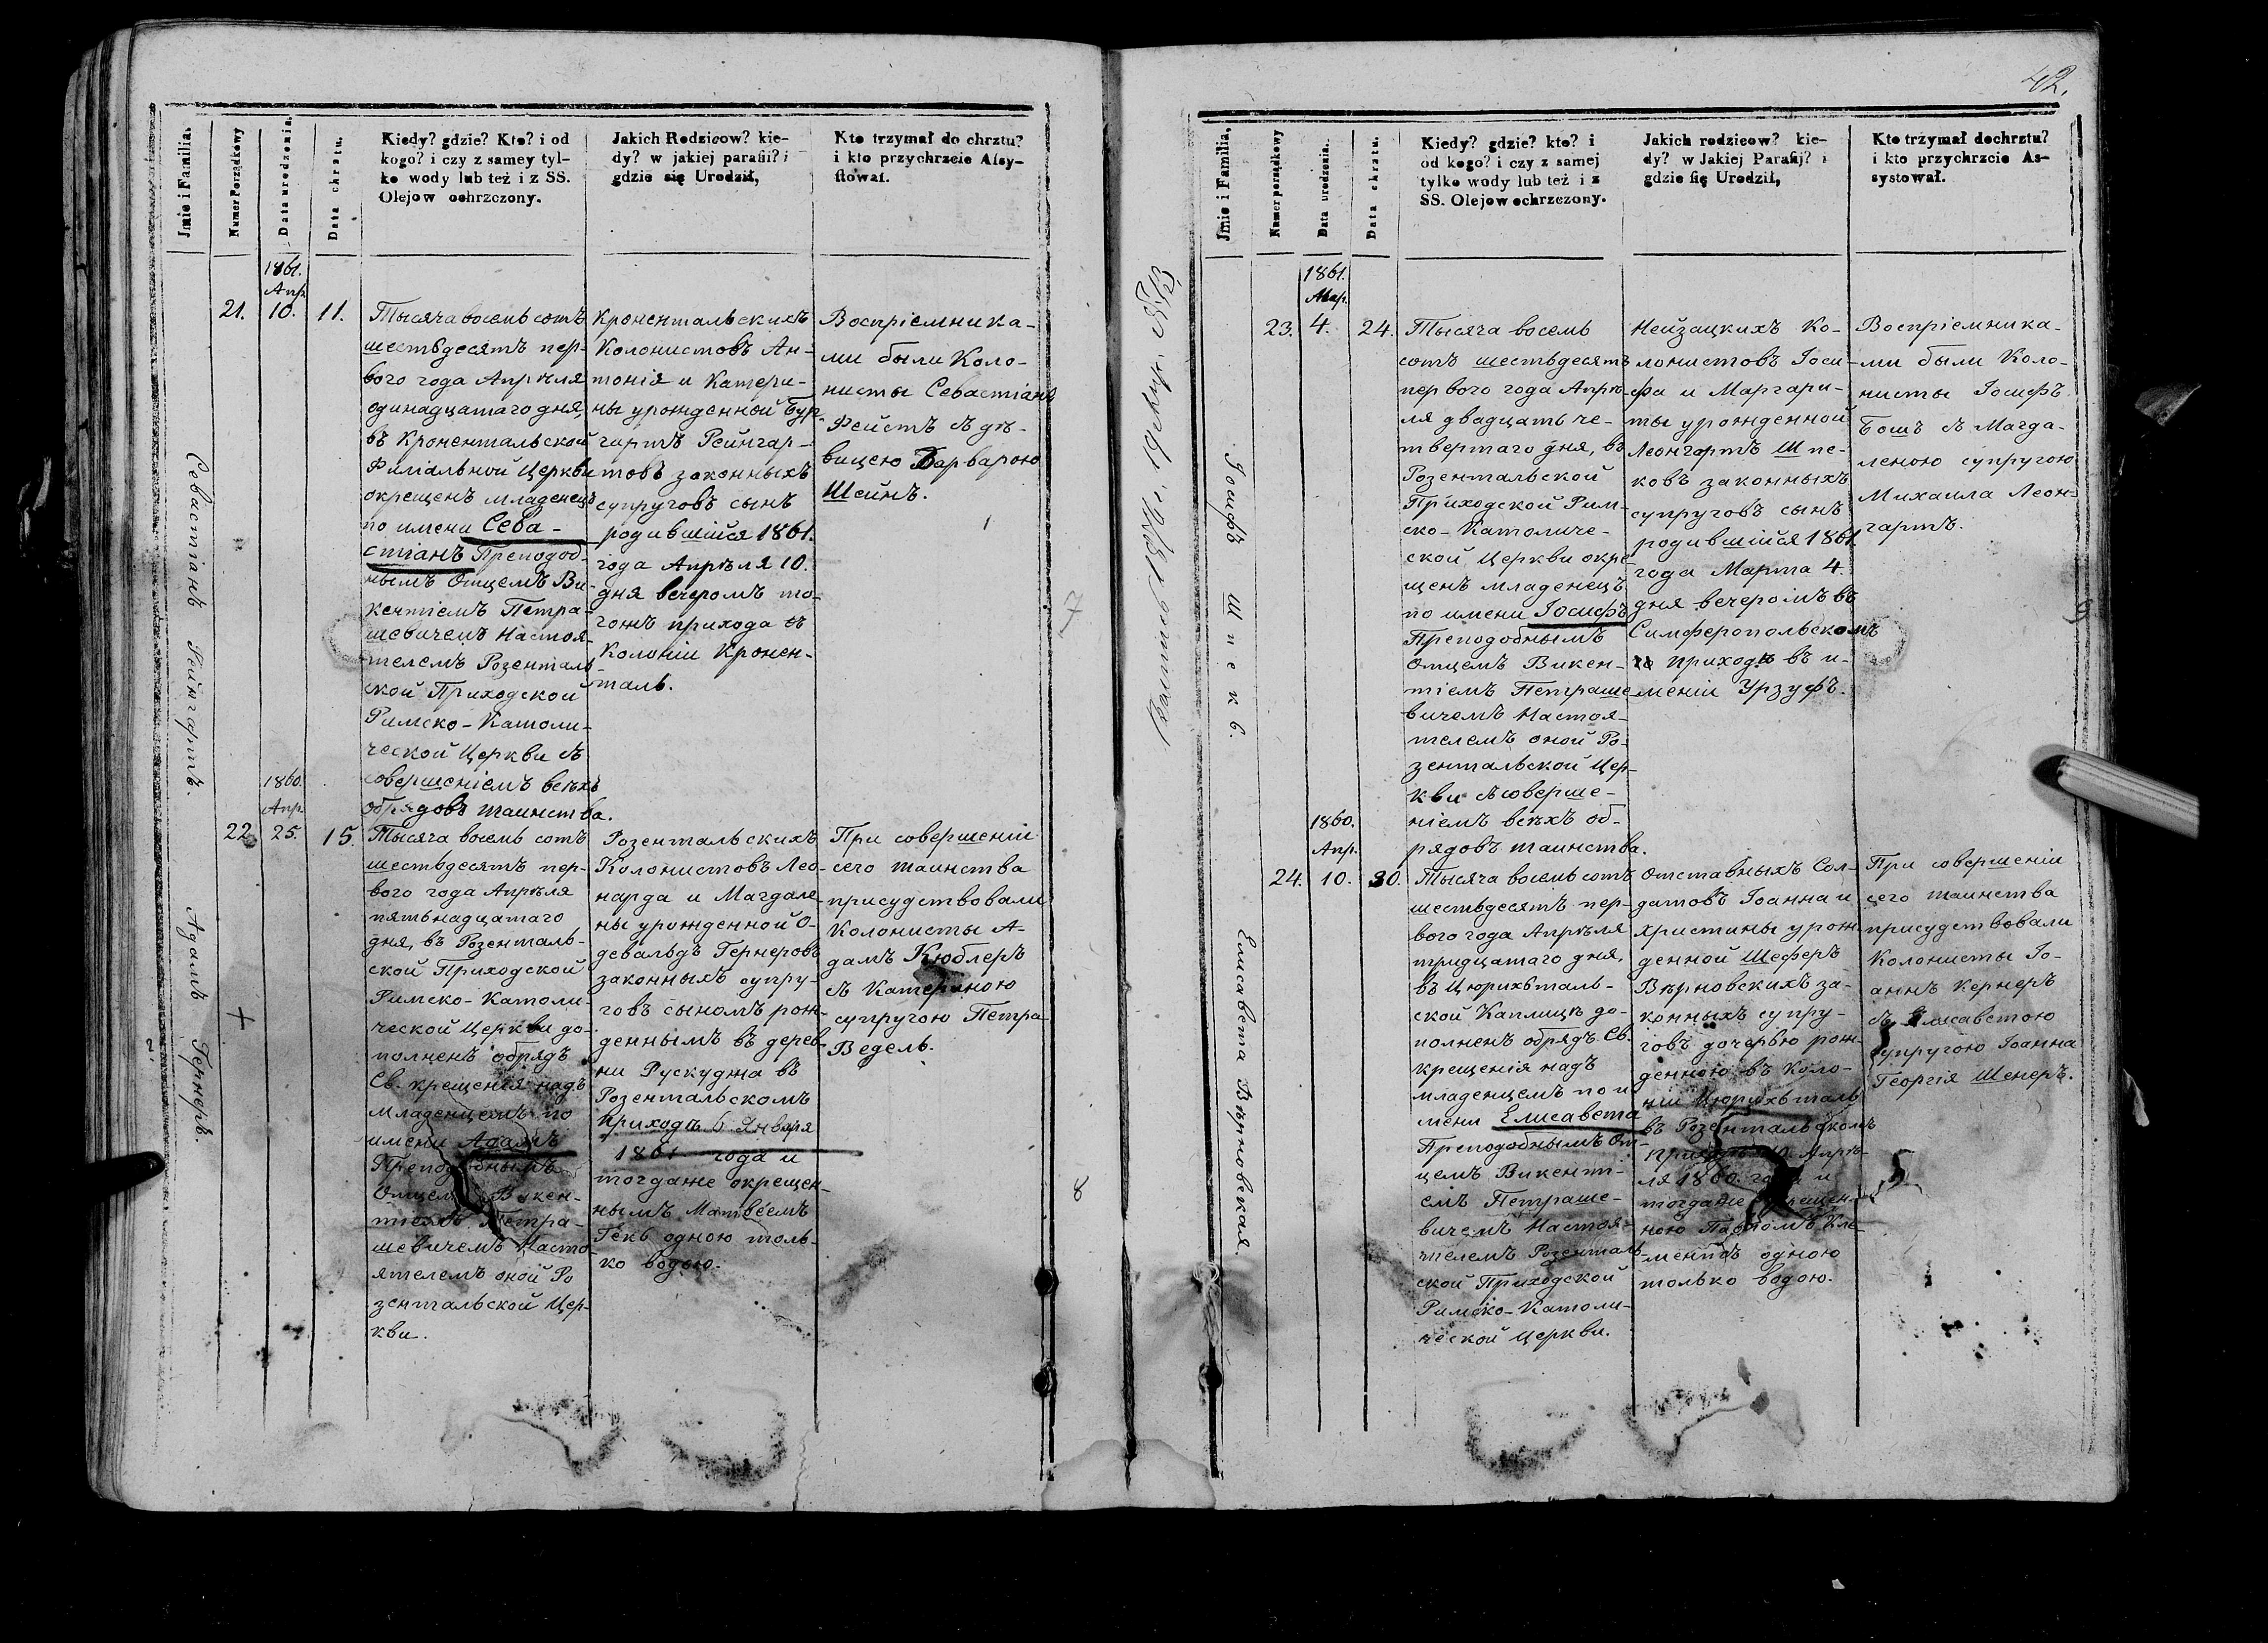 42.
Jmie i Familia.
Numer Porządkowy
Data urodzenia.
Data chrztu.
Kiedy? gdzie? Kto? i od
kogo? i czy z samey tyl-
ko wody lub też i z SS.
Olejow oehrzczony.
Jakich Rodzicow? kie-
dy? w jakiej parafii? i
gdzie się Urodził,
Kto trzymał do chrztu?
i kto przychrzcie Assy-
stował.
Севастіанъ Рейнгартъ.
1861.
Апр.
21. 10. 11.
Тысяча восемь сотъ
шестьдесятъ пер-
вого года Апрѣля
одинадцатаго дня,
въ Кронентальской
Филіальной Церкви
окрещенъ младенецъ
по имени Сева-
стіанъ Преподоб-
нымъ Отцемъ Ви-
кентіемъ Петра-
шевичемъ Настоя-
телемъ Розенталь-
ской Приходской
Римско-Католи-
ческой Церкви съ
совершеніемъ всѣхъ
обрядовъ таинства.
Кронентальскихъ
Колонистовъ Ан-
тонія и Катери-
ны урожденной Бур-
гартъ Рейнгар-
товъ законныхъ
супруговъ сынъ
родившійся 1861.
года Апрѣля 10.
дня вечеромъ то-
гожъ прихода въ
Колоніи Кронен-
таль.
Воспріемника-
ми были Коло-
нисты Севастіанъ
Фейстъ съ дѣ-
вицею Варварою
Шейнъ.
Адамъ Гернеръ.
1860.
Апр.
22. 25. 15.
Тысяча восемь сотъ
шестьдесятъ пер-
вого года Апрѣля
пятьнадцатаго
дня, въ Розенталь-
ской Приходской
Римско-Католи-
ческой Церкви до-
полненъ обрядъ
Св. крещенія надъ
младенцемъ по
имени Адамъ
Преподобнымъ
Отцемъ Викен-
тіемъ Петра-
шевичемъ Насто-
ятелемъ оной Ро
зентальской Цер-
кви.
Розентальскихъ
Колонистовъ Лео-
нарда и Магдале-
ны урожденной О-
девальдъ Гернеровъ
законныхъ супру-
говъ сыномъ рож-
деннымъ въ дерев-
ни Рускуджа въ
Розентальскомъ
приходѣ 6 Января
1861 года и
тогдаже окрещен-
нымъ Матвѣемъ
Гекъ одною толь-
ко водою.
При совершеніи
сего таинства
присудствовали
Колонисты А-
дамъ Кюблеръ
съ Катериною
супругою Петра
Ведель.
7
8
Jmie i Familia.
Numer porządkowy
Data urodzenia.
Data chrztu.
Kiedy? gdzie? kto? i
od kogo? i czy z samej
tylko wody lub też i z
SS. Olejow ochrzczony.
Jakich rodzicow? kie-
dy? w Jakiej Parafij? i
gdzie się Urodził,
Kto trzymał dochrztu?
i kto przychrzcie As-
systował.
Іосифъ Шпекъ.
1861.
Мар.
23. 4. 24.
Тысяча восемь
сотъ шестьдесятъ
первого года Апрѣ-
ля двадцать че-
твертаго дня, въ
Розентальской
Приходской Рим-
ско-Католиче-
ской Церкви окре-
щенъ младенецъ
по имени Іосифъ
Преподобнымъ
Отцемъ Викен-
тіемъ Петраше-
вичемъ Настоя-
телемъ оной Ро-
зентальской Цер-
кви съ соверше-
ніемъ всѣхъ об-
рядовъ таинства.
Нейзацкихъ Ко-
лонистовъ Іоси-
фа и Маргари-
ты урожденной
Леонгартъ Шпе-
ковъ законныхъ
супруговъ сынъ
родившійся 1861.
года Марта 4.
дня вечеромъ въ
Симферопольскомъ
приходѣ въ и-
меніи Урзуфъ.
Воспріемника-
ми были Коло-
нисты Іосифъ
Бошъ съ Магда-
леною супругою
Михаила Леон-
гартъ.
Елисавета Вѣрновская
1860.
Апр.
24. 10. 30.
Тысяча восемь сотъ
шестьдесятъ пер-
вого года Апрѣля
тридцатаго дня,
въ Цюрихталь-
ской Каплицѣ до-
полненъ обрядъ Св.
крещенія надъ
младенцемъ по и
мени Елисавета
Преподобнымъ От-
цемъ Викенті-
емъ Петраше-
вичемъ Настоя-
телемъ Розенталь-
ской Приходской
Римско-Католи-
ческой Церкви.
Отставныхъ Сол-
датовъ Іоанна и
Христины урож-
денной Шеферъ
Вѣрновскихъ за-
конныхъ супру-
говъ дочерью рож-
денною въ Коло-
ніи Цюрихталь
въ Розентальскомъ
приходѣ 10. Апрѣ-
ля 1860. года и
тогдаже окрещен-
ною Павломъ Кле-
менцъ одною
только водою.
При совершеніи
сего таинства
присудствовали
Колонисты Іо-
аннъ Кернеръ
съ Елисаветою
супругою Іоанна
Георгія Шенеръ.